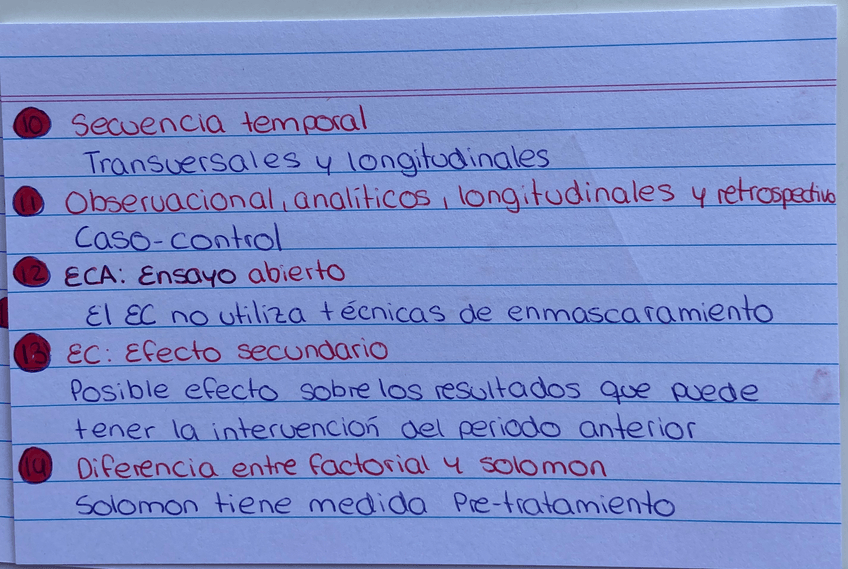 10 Secuencia temporal
Transversales y longitudinales
11 Observacional, analíticos, longitudinales y retrospectivo
Caso-control
12 ECA: Ensayo abierto
El EC no utiliza técnicas de enmascaramiento
13 EC: Efecto secundario
Posible efecto sobre los resultados que puede
tener la intervención del periodo anterior
14 Diferencia entre factorial y solomon
Solomon tiene medida Pre-tratamiento